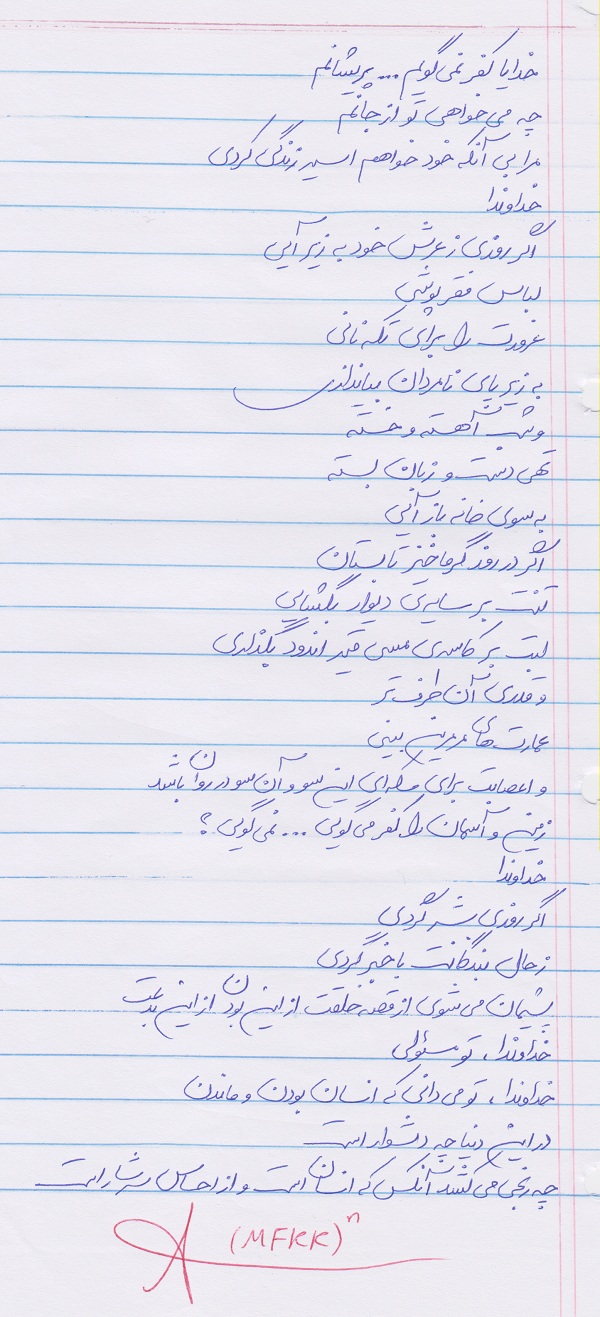 خدایا کفر نمی گویم ... پریشانم
چه می خواهی تو از جانم
مرا بی آنکه خود خواهم اسیر زندگی کردی
خداوندا
اگر روزی ز عرش خود به زیر آیی
لباس فقر پوشی
غرورت را برای تکه نانی
به زیر پای نامردان بیاندازی
و شب آهسته و خسته
تهی دست و زبان بسته
به سوی خانه باز آئی
اگر در روز گرماخیز تابستان
تنت بر سایه ی دیوار بگشایی
لبت بر کاسه ی مسی قیر اندود بگذاری
و قدری آن طرف تر
عمارت های مرمرین بینی
و اعصابت برای سکه ای این سو و آن سو در روان باشد
زمین و آسمان را کفر می گویی ... نمی گویی ؟
خداوندا
اگر روزی بشر گردی
ز حال بندگانت با خبر گردی
پشیمان می شوی از قصه خلقت از این بودن از این بدعت
خداوندا ، تو مسئولی
خداوندا ، تو می دانی که انسان بودن و ماندن
در این دنیا چه دشوار است
چه رنجی می کشد آنکس که انسان است و از احساس سرشار است
(MFKK)ⁿ